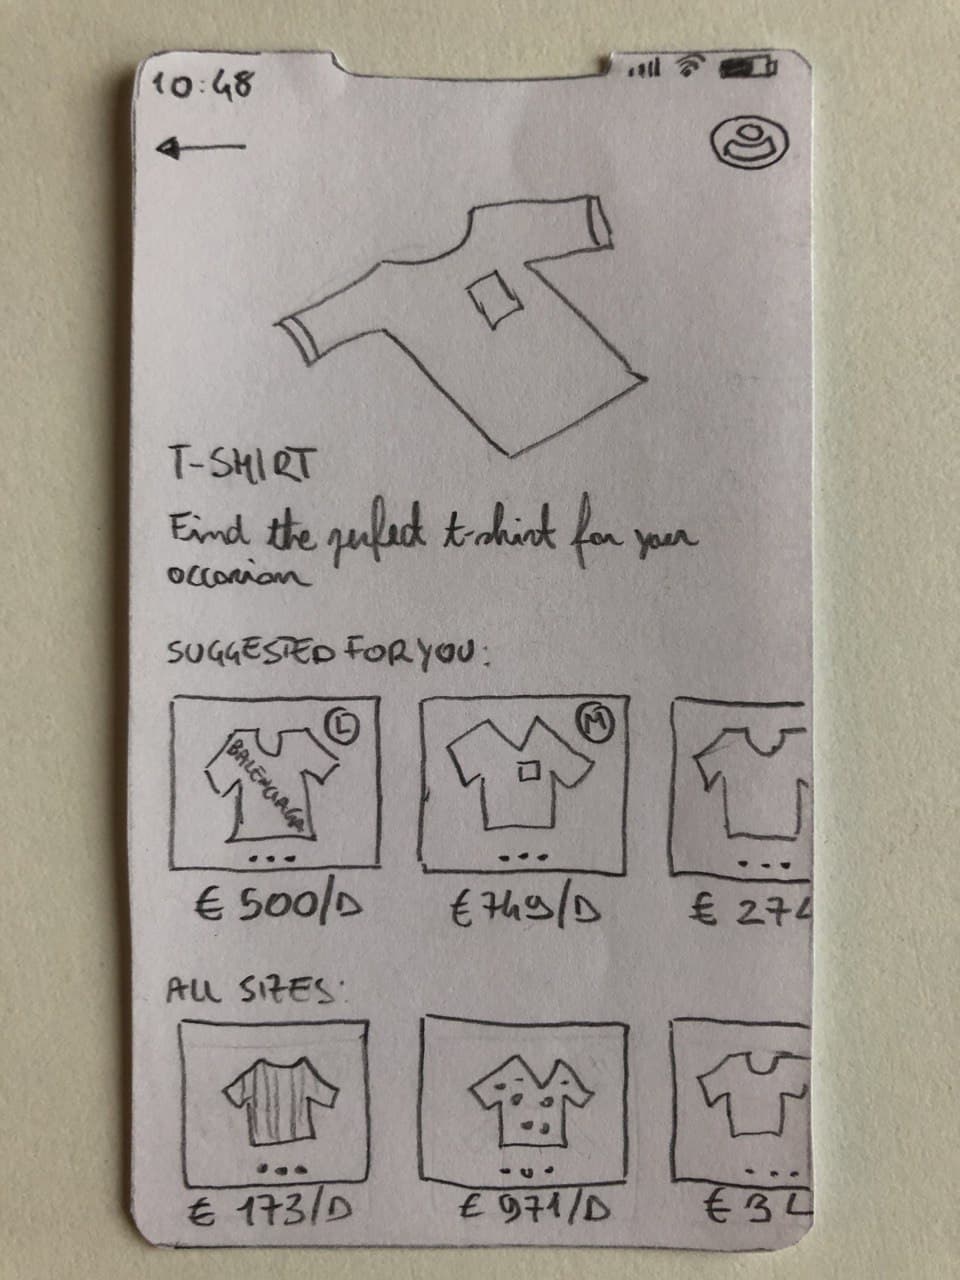 10:48
T-SHIRT
Find the perfect t-shirt for your
occasion
SUGGESTED FOR YOU:
L M
BALENCIAGA
€ 500/D € 749/D € 27
ALL SIZES:
€ 173/D € 971/D € 3